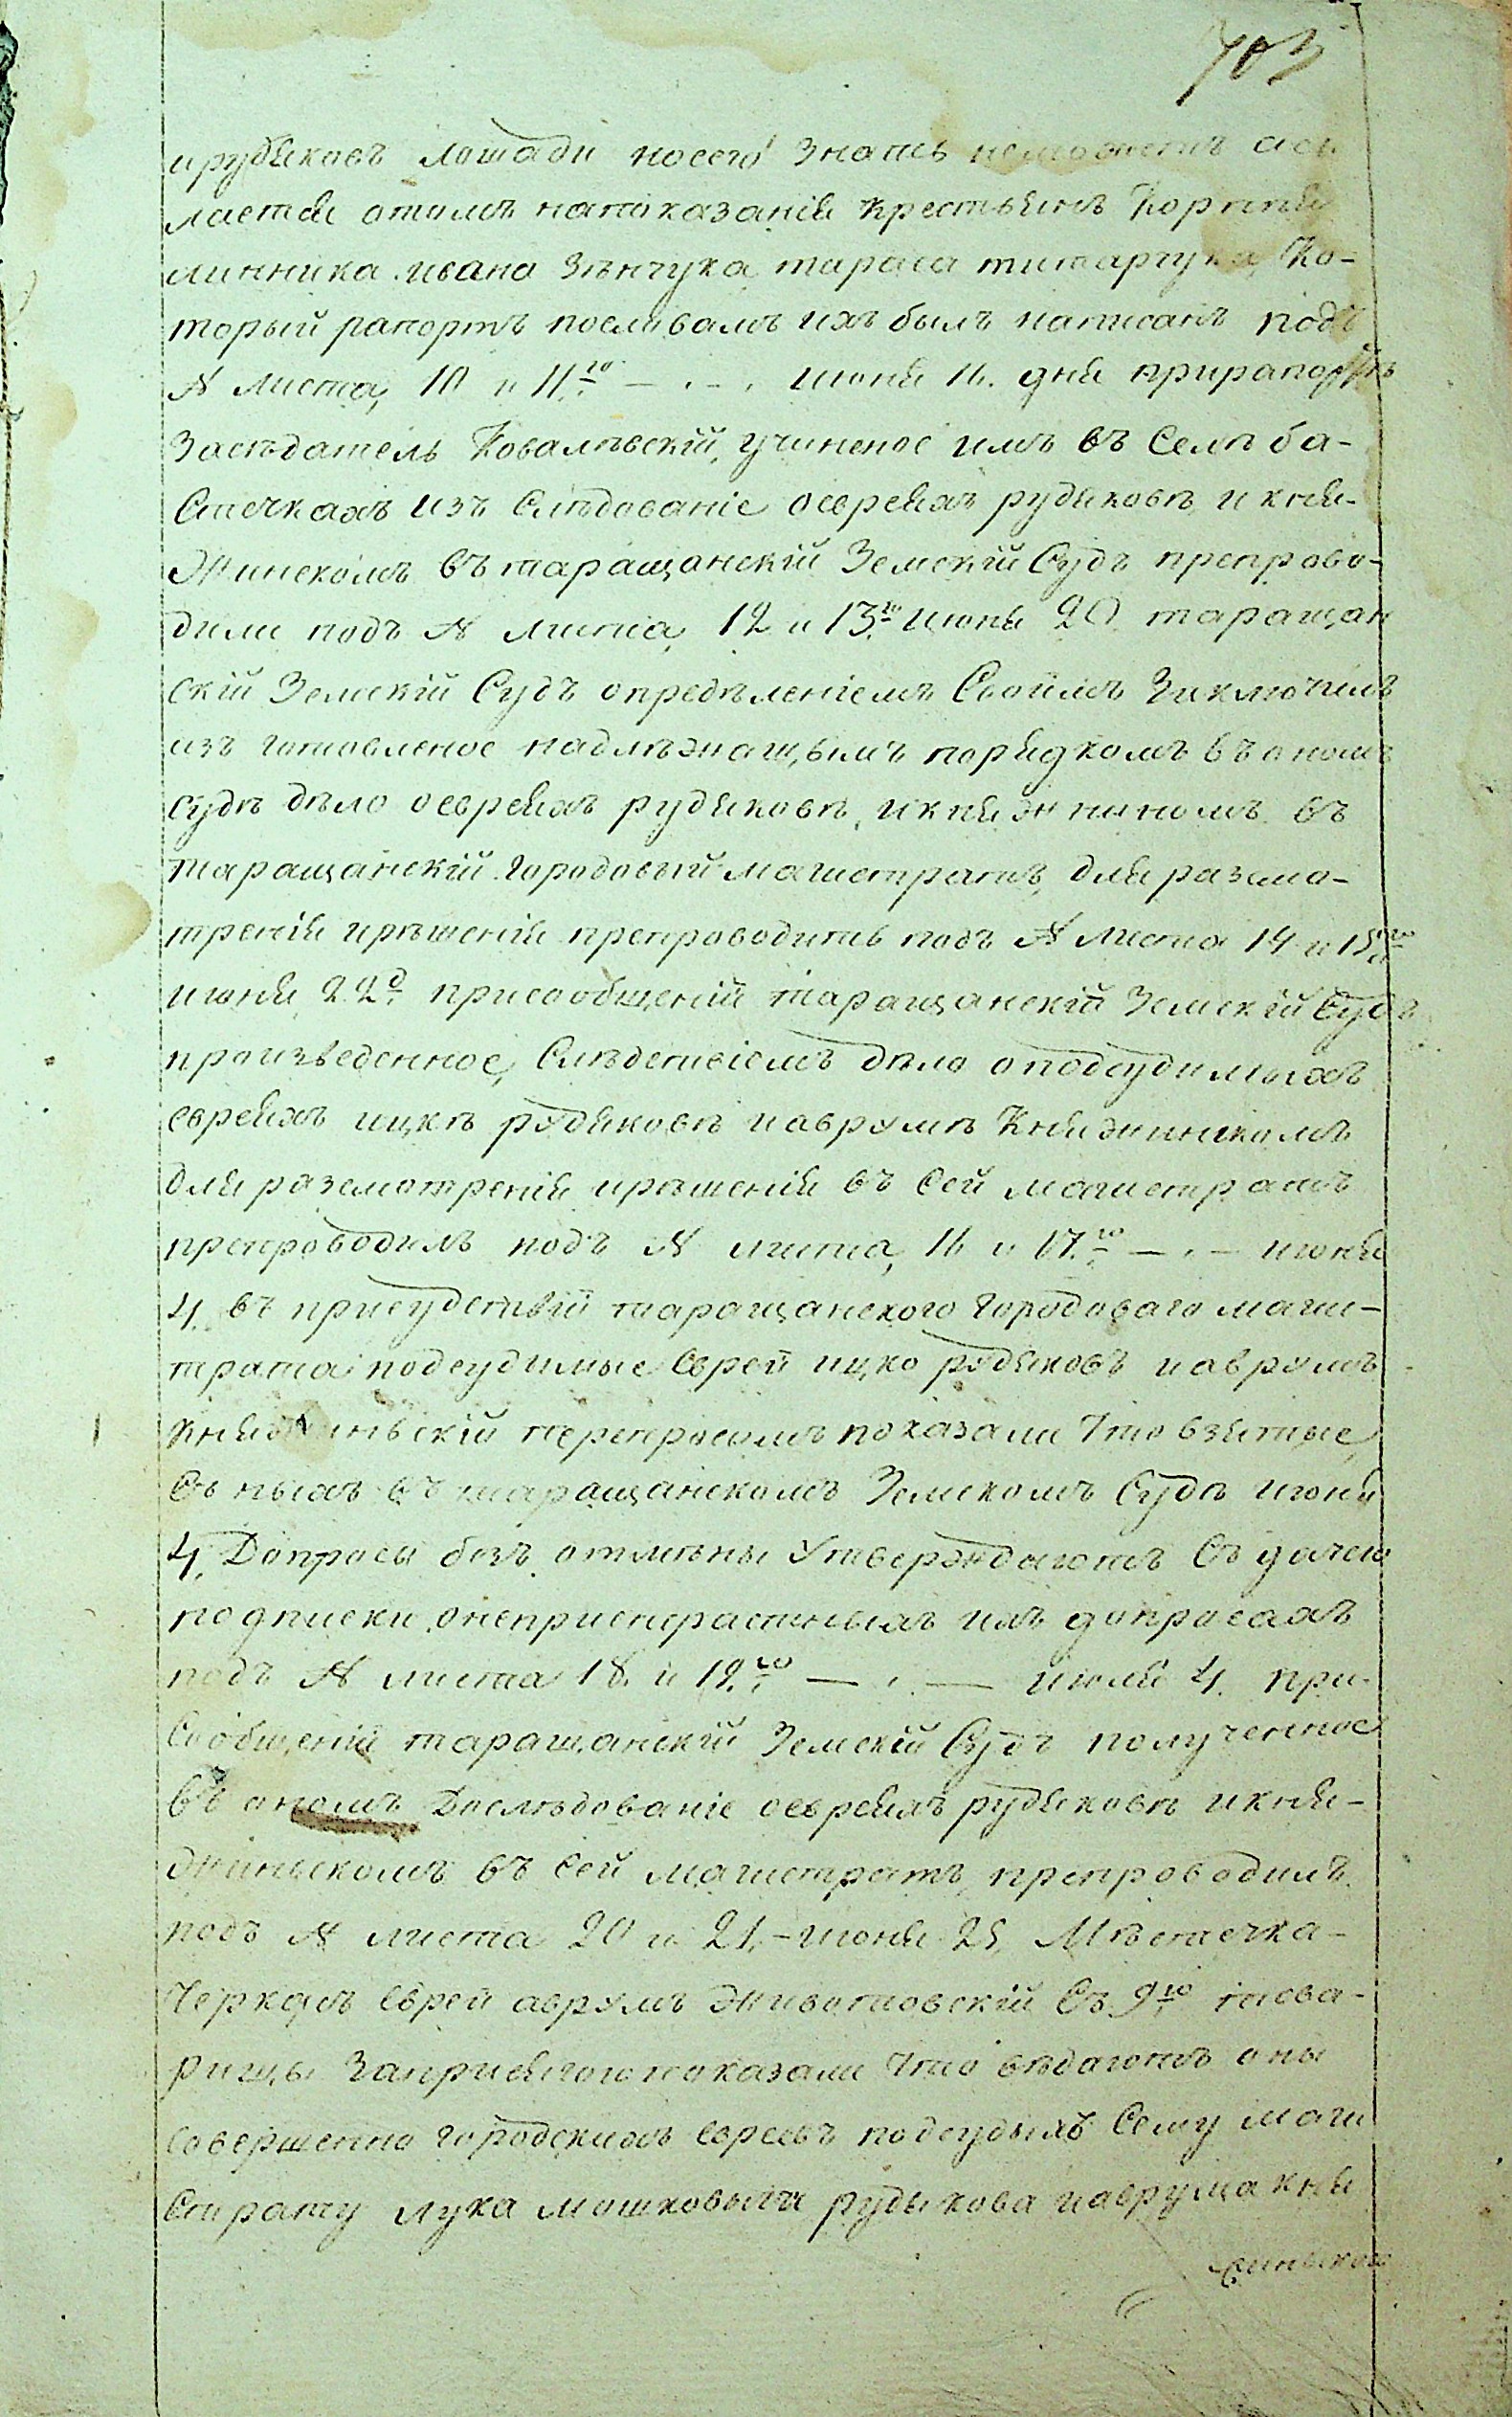 703
ирудыковъ лошади носего знать неможетъ ссы
лается отомъ напоказаніи крестьянъ Корнія
линника ивана Зѣнчука тараса титарчука, ко-
торый рапортъ пословамъ ихъ былъ написанъ подъ
№ листа, 10 и 11го — . — . июня 16. дня прирапортѣ
Засѣдатель Ковалѣвскій, учиненое имъ въ Селѣ ба-
Стечкахъ изъ Слѣдованіе оевреяхъ рудыковѣ, и кня-
Жинскомъ въ таращанскій Земскій Судъ препрово-
дили подъ № листа, 12 и 13го июня 20. таращан
скій Земскій Судъ опредѣленіемъ Своимъ Заключилъ
изъ готовленое надлѣжащымъ порядкомъ въ ономъ
судѣ дѣло оевреяхъ рудыковѣ, икняжинскомъ въ
таращанскій городовый магистратъ, для разсмо-
тренія ирѣшенія препроводить подъ № листа 14 и 15го
июня 22д присообщеніи таращанскій Земскій Судъ
произведенное, Слѣдствіемъ дѣло оподсудимыхъ
евреяхъ ицкѣ рудыковѣ иаврумѣ Княжинскомъ
для разсмотренія ирѣшенія въ Сей магистратъ
препроводилъ подъ № листа, 16 и 17.го — . — июня
4. въ присудствіи таращанского городоваго маги-
трата подсудимые Еврей ицко рудыковъ иаврумъ
княжиньскій перепросомъ показали Что взятые,
Съ ныхъ въ таращанскомъ Земскомъ Судѣ июня
4, Допросы безъ отмѣны утверждаютъ Съ дачею
подписки онепристрастныхъ ихъ допросахъ
подъ № листа 18. и 19.го — . — июля 4. при-
Сообщеніи таращанскій Земскій Судъ полученное
въ ономъ Дослѣдованіе оевреяхъ рудыковѣ икня-
жиньскомъ въ Сей магистратъ, препроводилъ
подъ № листа 20 и 21, – июня 25, Мѣстечка-
Черкасъ Еврей аврумъ Животовскій Съ 9ю това-
рищы Заприсягою показали Что вѣдаютъ оны
совершенно городскихъ евреевъ подсудыхъ Сему маги
Страту лука мошковыча рудыкова иаврума кня
жиньског